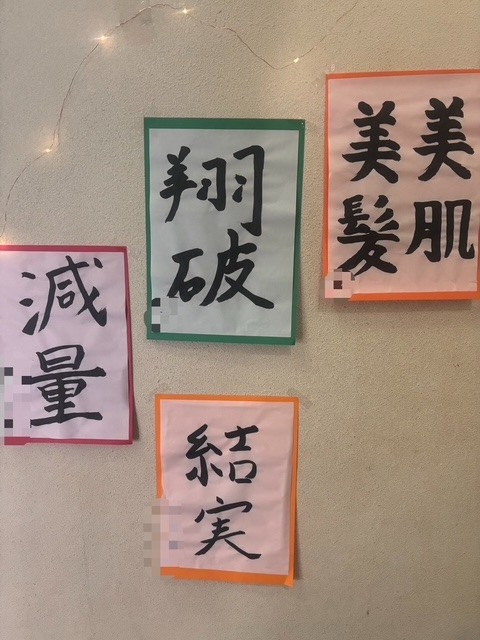 減量
翔破
結実
美肌
美髪